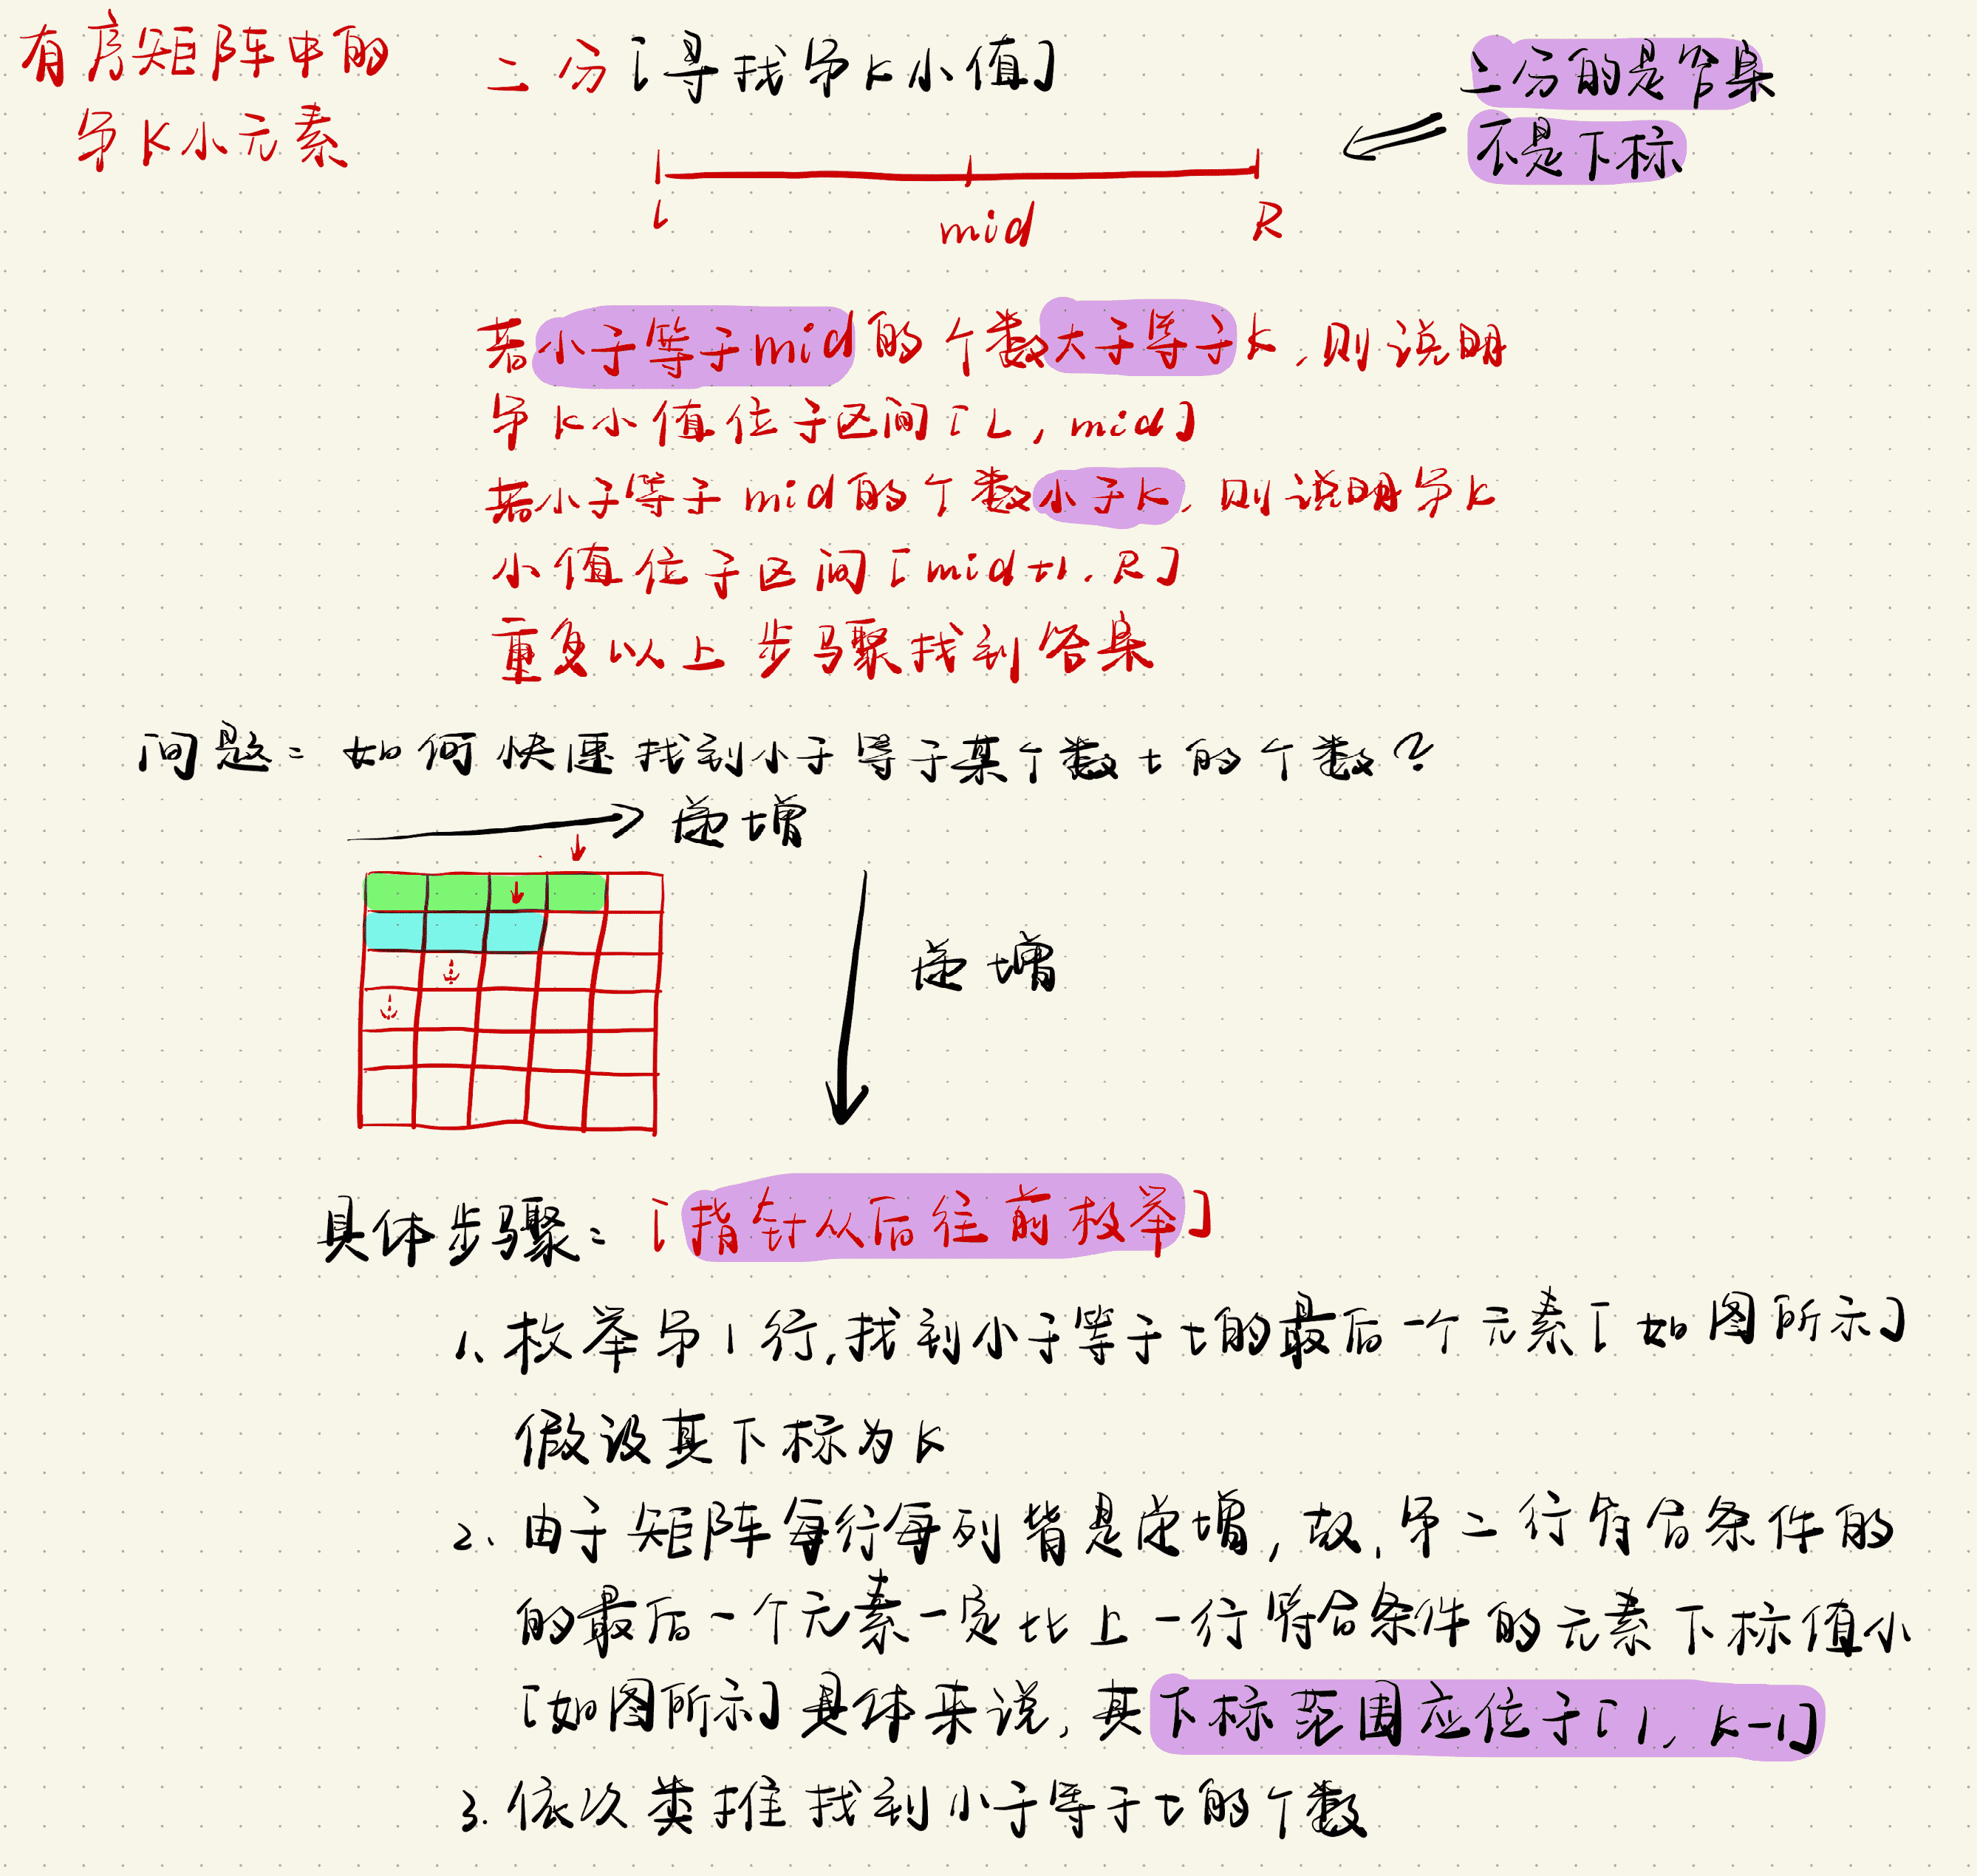 有序矩阵中的
第K小元素
二分[寻找第K小值]
二分的是答案
不是下标
L
mid
R
若小于等于mid的个数大于等于k,则说明
第k小值位于区间[L, mid]
若小于等于mid的个数小于k,则说明第k
小值位于区间[mid+1, R]
重复以上步骤找到答案
问题: 如何快速找到小于等于某个数t的个数?
递增
递增
具体步骤: [指针从后往前枚举]
1. 枚举第1行,找到小于等于t的最后一个元素[如图所示]
假设其下标为k
2. 由于矩阵每行每列皆是递增,故,第二行符合条件的
的最后一个元素一定比上一行符合条件的元素下标值小
[如图所示]具体来说,其下标范围应位于[1, k-1]
3. 依次类推找到小于等于t的个数